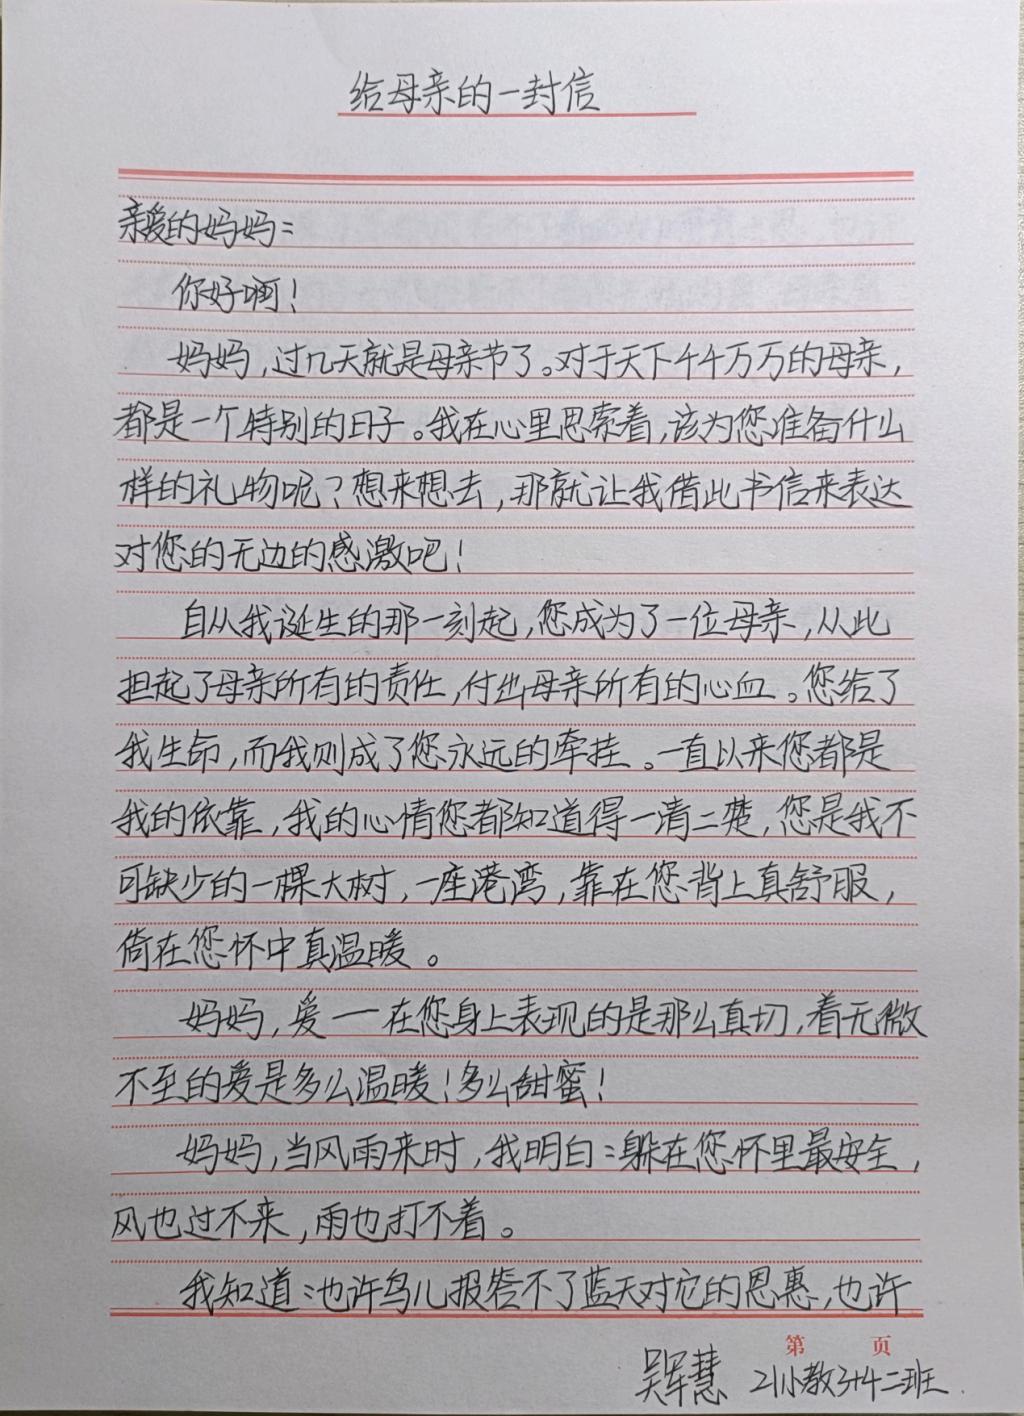 给母亲的一封信
亲爱的妈妈：
你好啊！
妈妈，过几天就是母亲节了。对于天下千千万万的母亲，
都是一个特别的日子。我在心里思索着，该为您准备什么
样的礼物呢？想来想去，那就让我借此书信来表达
对您的无边的感激吧！
自从我诞生的那一刻起，您成为了一位母亲，从此
担起了母亲所有的责任，付出母亲所有的心血。您给了
我生命，而我则成了您永远的牵挂。一直以来您都是
我的依靠，我的心情您都知道得一清二楚，您是我不
可缺少的一棵大树，一座港湾，靠在您背上真舒服，
倚在您怀中真温暖。
妈妈，爱一在您身上表现的是那么真切，着无微
不至的爱是多么温暖！多么甜蜜！
妈妈，当风雨来时，我明白：躲在您怀里最安全，
风也过不来，雨也打不着。
我知道：也许鸟儿报答不了蓝天对它的恩惠，也许
第 页
吴军慧 21小教3+4二班